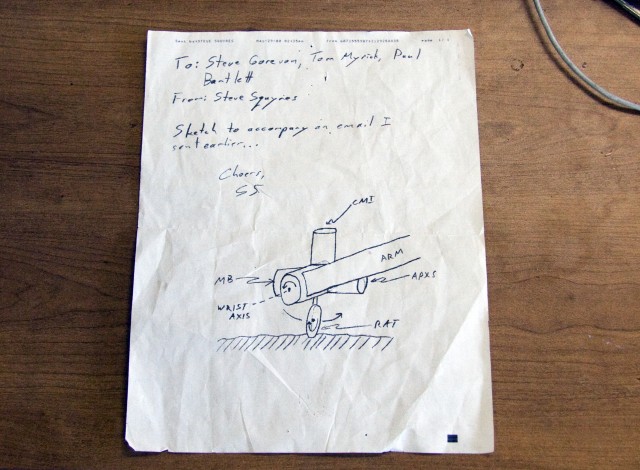 To: Steve Gorevan, Tom Myrick, Paul
Bartlett
From: Steve Squyres
Sketch to accompany an email I
sent earlier...
Cheers,
SS
CMI
ARM
MB
APXS
WRIST
AXIS
RAT